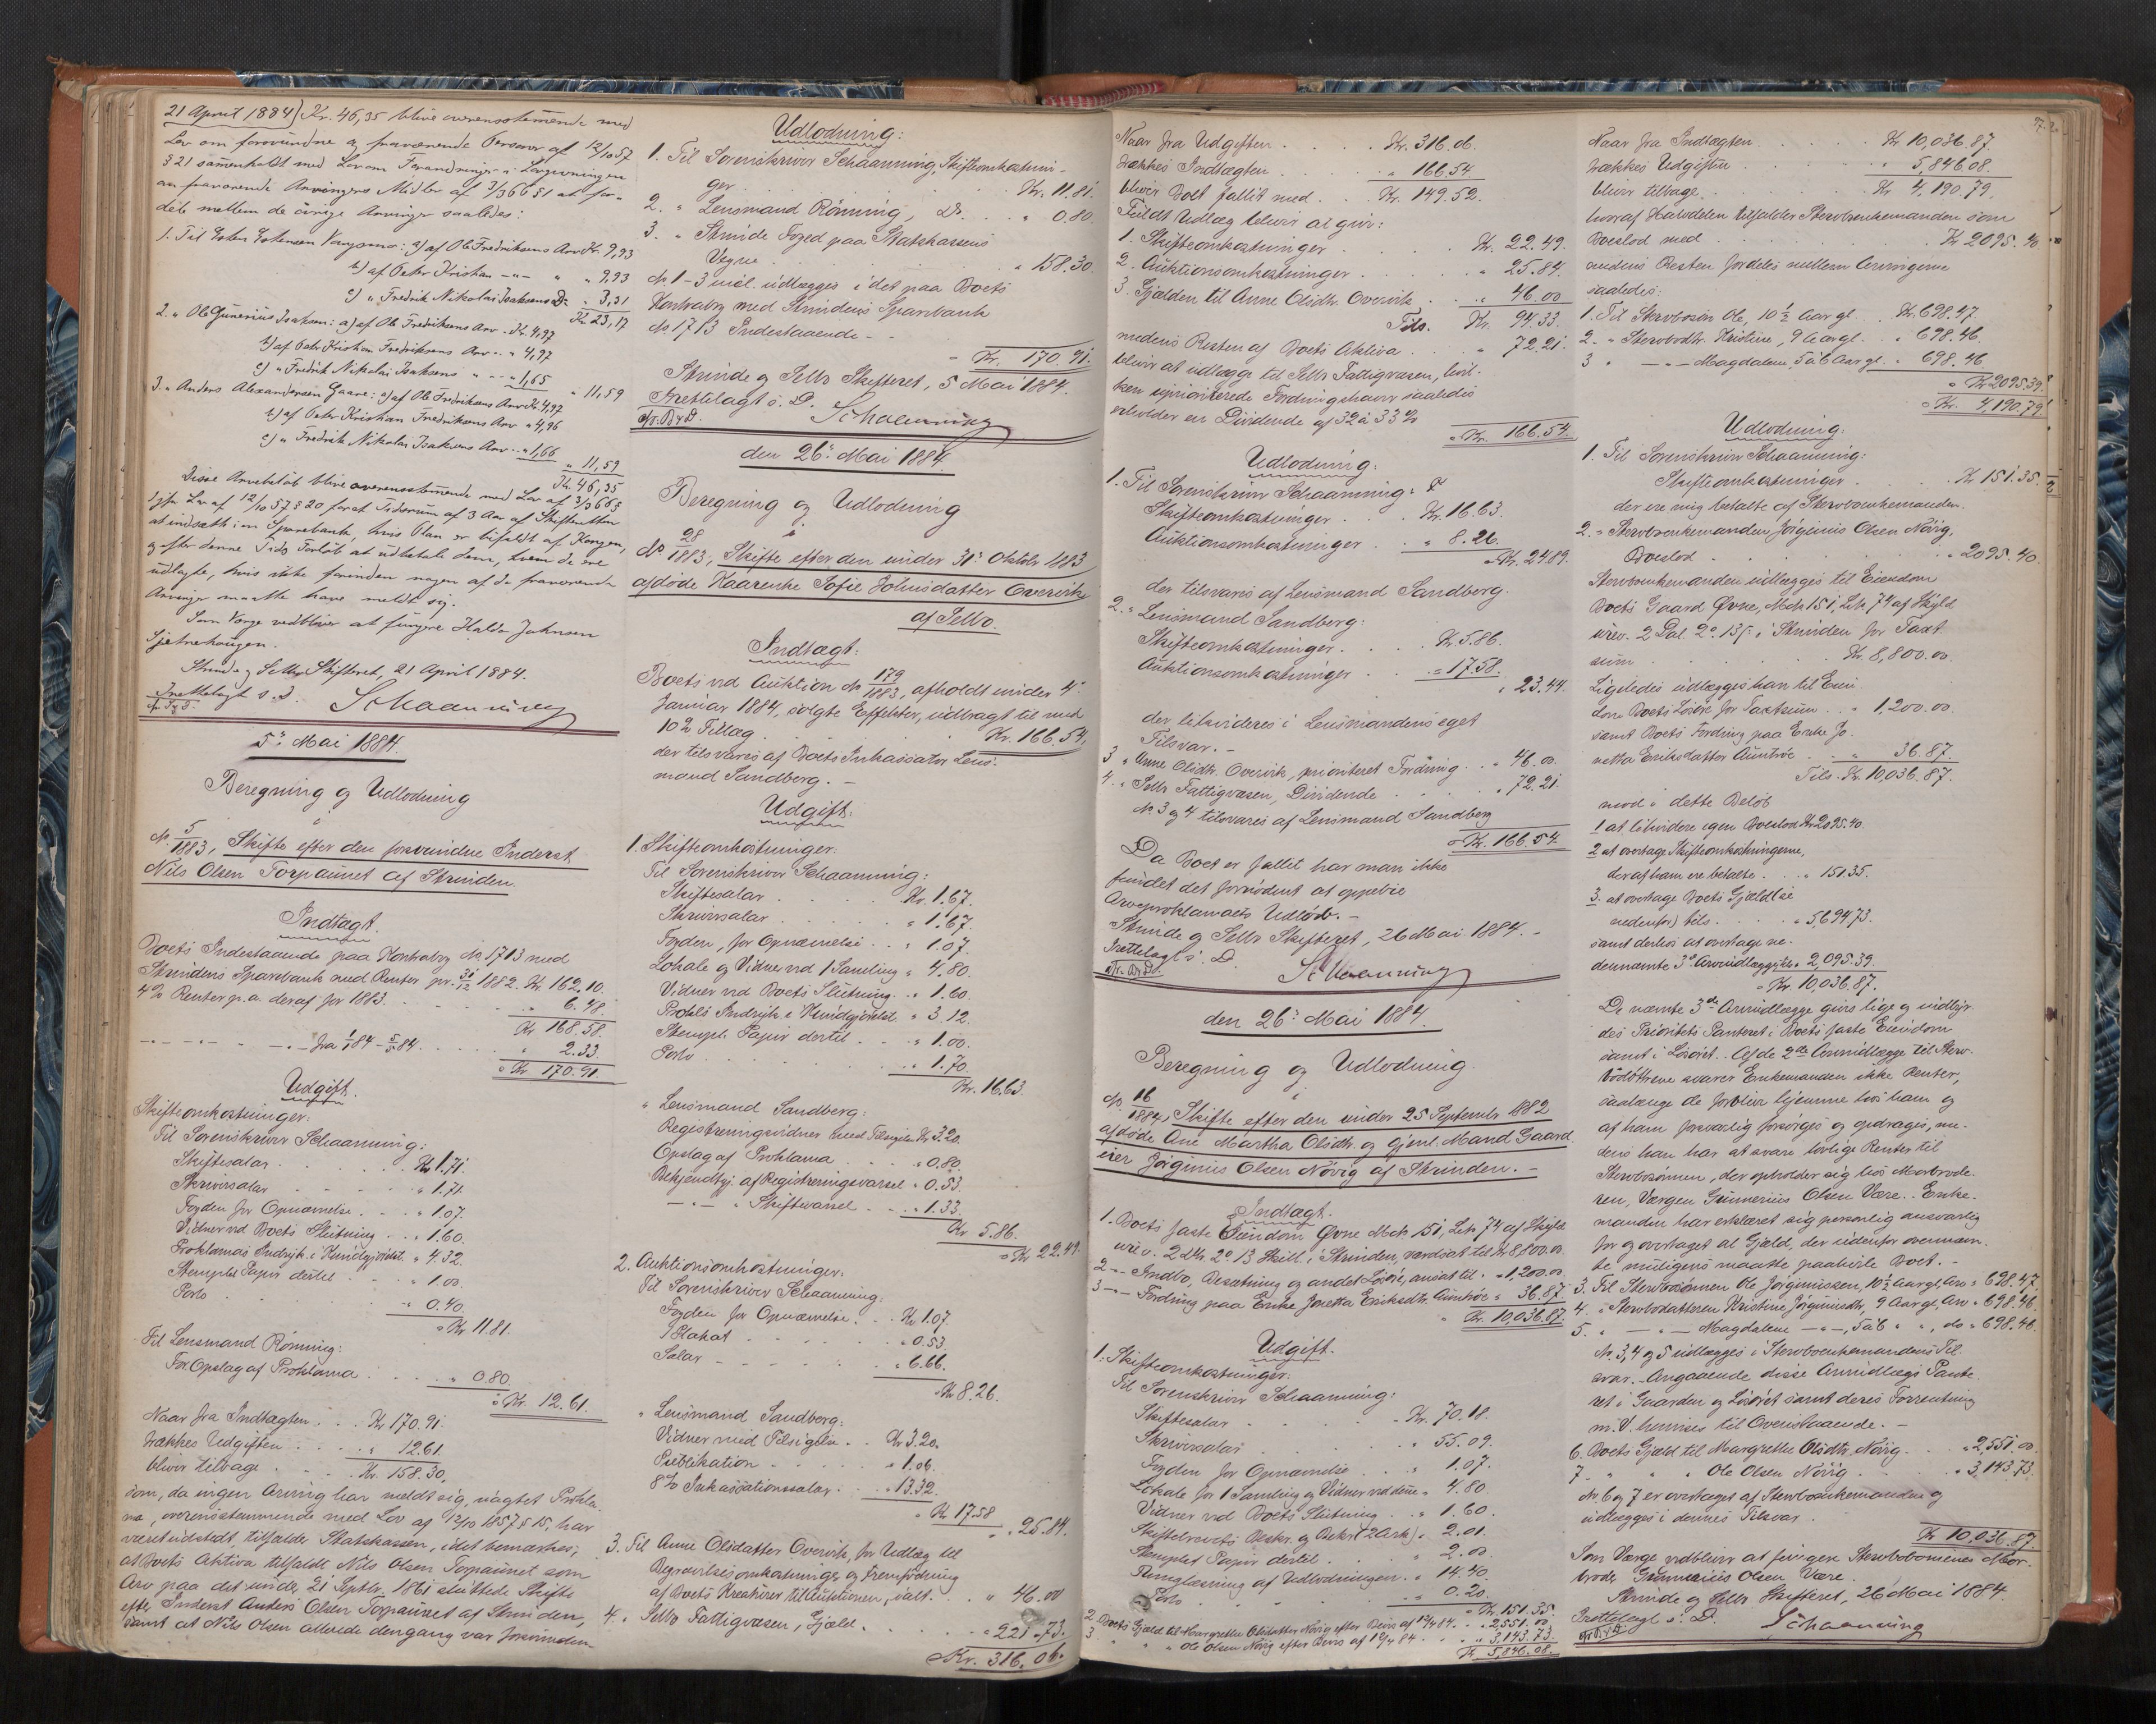 21 April 1884) Kr. 46,35 blive overensstemmende med
Lov om forsvundne og fraværende Personer af 12/10 57
§ 21 sammenholdt med Lov om Forandringer i Lovgivningen
an fraværende Arvingers Midler af 3/3 66 § 1 at for-
dele mellem de øvrige Arvinger saaledes:
1. Til Esten Estensen Vangsmo: a) af Ole Fredriksens Arv Kr. 9,93
b) af Peter Kristian -"- " 9,93
c) " Fredrik Nikolai Isaksens Do " 3,31
Kr. 23,17
2. " Ole Gunerius Isaksen: a) af Ole Fredriksens Arv - Kr. 4,97
b) af Peter Kristian Fredriksens Arv - " 4,97
c) " Fredrik Nikolai Isaksens " - " 1,65
" 11,59
3. " Anders Alexandersen Gaare: a) af Ole Fredriksens Arv Kr. 4,97
b) af Peter Kristian Fredriksens Arv " 4,96
c) " Fredrik Nikolai Isaksens Arv - " 1,66
" 11,59
Kr. 46,35
Disse Arvebeløb blive overensstemmende med Lov af 3/3 66 §
1 jfr. Lov af 12/10 57 § 20 for et Tidsrum af 3 Aar af Skifteretten
at indsætte i en Sparebank, hvis Plan er bifaldt af Kongen,
og efter denne Tids Forløb at udbetale dem, hvem de ere
udlagte, hvis ikke forinden nogen af de fraværende
Arvinger maatte have meldt sig.
Som Værge vedbliver at fungere Haldo Johnsen
Sjetnehaugen.
Strinde og Selbu Skifteret, 21 April 1884.
Fremlagt s. D. Schaanning
5te Mai 1884.
Beregning og Udlodning
i
No 5/1883, Skifte efter den forsvundne Inderst
Nils Olsen Torpaunet af Strinden.
Indtægt.
Boets Indestaaende paa Kontrabog No 1713 med
Strindens Sparebank med Renter pr. 31/12 1882. Kr. 162.10.
4 % Renter p. a. deraf for 1883. " 6.48.
Kr. 168.58.
-"- -"- fra 1/1 84 - 5/5 84. " 2.33
= Kr. 170.91
Udgift.
Skifteomkostninger:
Til Sorenskriver Schaanning:
Skiftesalar Kr. 1.71.
Skriversalar " 1.71.
Fogden for Opnævnelse " 1.07.
Vidner ved Boets Slutning " 1.60.
Proklamas Indryk. i Kundgjørelst. " 4.32.
Stemplet Papir dertil " 1.00.
Porto " 0.40.
= Kr. 11.81.
Til Lensmand Rønning:
For Opslag af Proklama " 0.80.
= Kr. 12.61.
Naar fra Indtægten Kr. 170.91.
trækkes Udgiften " 12.61.
bliver tilbage Kr. 158.30,
som, da ingen Arving har meldt sig, uagtet Prokla-
ma, overensstemmende med Lov af 12/10 1857 § 15, har
været udstedt, tilfalder Statskassen, idet bemærkes,
at Boets Aktiva tilfaldt Nils Olsen Torpaunet som
Arv paa det under 21 Septbr. 1861 sluttede Skifte
efter Inderst Anders Olsen Torpaunet af Strinden,
samt at Nils Olsen allerede dengang var forsvunden
Udlodning:
1. Til Sorenskriver Schaanning, Skifteomkostnin-
ger Kr. 11.81.
2. " Lensmand Rønning, Do. " 0.80.
3. " Strinde Foged paa Statskassens
Vegne " 158.30.
No 1-3 incl. udlægges i det paa Boets
Kontrabog med Strindens Sparebank
No. 1713 Indestaaende -
= Kr. 170.91.
Strinde og Selbu Skifteret, 5 Mai 1884.
Fremlagt s. D. Schaanning
den 26de Mai 1884.
Beregning og Udlodning
i
No. 28/1883, Skifte efter den under 31te Oktobr 1883
afdøde Kaarenke Sofie Johnsdatter Overvik
af Selbo.
Indtægt:
Boets ved Auktion No 179/1883, afholdt under 4de
Januar 1884, solgte Effekter, udbragt til med
10 % Tillæg Kr. 166.54,
der tilsvares af Boets Inkassator Lens-
mand Sandberg. -
Udgift:
1. Skifteomkostninger:
Til Sorenskriver Schaanning:
Skiftesalar Kr. 1.67.
Skriversalar " 1.67.
Fogden, for Opnævnelse " 1.07
Lokale og Vidner ved 1 Samling " 4.80.
Vidner ved Boets Slutning " 1.60.
Prokls Indryk. i Kundgjørelst. " 3.12.
Stempl. Papir dertil " 1.00.
Porto " 1.70.
Kr. 16.63.
" Lensmand Sandberg:
Registreringsvidner med Tilsigelse Kr. 3.20.
Opslag af Proklama " 0.80.
Bekjendtgj. af Registreringsvarsel " 0.53.
-"- " Skiftevarsel " 1.33.
Kr. 5.86.
= Kr. 22.49.
2. Auktionsomkostninger:
Til Sorenskriver Schaanning:
Fogden for Opnævnelse Kr. 1.07.
Plakat " 0.53.
Salar " 6.66.
= Kr. 8.26.
" Lensmand Sandberg:
Vidner med Tilsigelse Kr. 3.20.
Publikation " 1.06.
8 % Inkassationssalar " 13.32.
" Kr. 17.58
" 25.84.
3. Til Anne Olsdatter Overvik, for Udlæg til
Begravelsesomkostninger og Fremførdning
af Boets Kreaturer til Auktionen, ialt " 46.00
4. " Selbo Fattigvæsen, Gjæld " 221.73.
Kr. 316.06.
Naar fra Udgiften Kr. 316.06.
trækkes Indtægten " 166.54
bliver Boet fallit med Kr. 149.52.
Fuldt Udlæg bliver at give:
1. Skifteomkostninger Kr. 22.49.
2. Auktionsomkostninger " 25.84.
3. Gjælden til Anne Olsdtr. Overvik " 46.00
Tils. Kr. 94.33.
medens Resten af Boets Aktiva " 72.21.
bliver at udlægge til Selbo Fattigvæsen, hvil-
ken uprioriterede Fordringshaver saaledes
erholder en Dividende af 32 à 33 %
= Kr. 166.54.
Udlodning:
1. Til Sorenskriver Schaanning:
Skifteomkostninger Kr. 16.63.
Auktionsomkostninger " 8.26.
= Kr. 24.89.
der tilsvares af Lensmand Sandberg.
2. " Lensmand Sandberg:
Skifteomkostninger Kr. 5.86.
Auktionsomkostninger " 17.58.
" 23.44.
der likvideres i Lensmandens eget
Tilsvar. -
3. " Anne Olsdtr. Overvik, prioriteret Fordring " 46.00.
4. " Selbo Fattigvæsen, Dividende " 72.21.
No. 3 og 4 tilsvares af Lensmand Sandberg
= Kr. 166.54.
Da Boet er fallit har man ikke
fundet det fornødent at oppebie
Arveproklamaets Udløb. -
Strinde og Selbo Skifteret, 26 Mai 1884. -
Fremlagt s. D. Schaanning
den 26de Mai 1884.
Beregning og Udlodning
i
No. 16/1884, Skifte efter den under 25 Septembr 1882
afdøde Ane Martha Olsdtr. og gjenl. Mand Gaard-
eier Jørginus Olsen Növig af Strinden. -
Indtægt.
1. Boets faste Eiendom Øvre Mek 151, Lek 74 af Skyld
urev. 2 Dlr. 2 o. 13 Skill. i Strinden, værdsat til Kr. 8,800.00.
2 -"- Indbo, Besætning og andet Løsøre, ansat til " 1,200.00.
3 -"- Fordring paa Enke Jonetta Eriksdtr. Aunhøe " 36.87.
= Kr. 10,036.87.
Udgift.
1. Skifteomkostninger:
Til Sorenskriver Schaanning:
Skiftesalar Kr. 70.18.
Skriversalar " 55.09.
Fogden for Opnævnelse " 1.07.
Lokale for 1 Samling og Vidner ved denne " 4.80.
Vidner ved Boets Slutning " 1.60.
Skiftebrevets Beskr. og Bekr. (2 Ark) " 2.01.
Stemplet Papir dertil " 2.00.
Thinglæsning af Udlodningen " 14.40.
Porto " 0.20.
= Kr. 151.35.
2. Boets Gjæld til Margrethe Olsdatter Növig efter Bevis af 12/4 84 " 2,551.00.
3 " " " Ole Olsen Növig efter Bevis af 12/4 84 " 3,143.73.
Kr. 5,846.08.
Naar fra Indtægten Kr. 10,036.87.
trækkes Udgiften " 5,846.08.
bliver tilbage Kr. 4,190.79,
hvoraf Halvdelen tilfalder Stervboenkemanden som
Boeslod med Kr. 2095.40
medens Resten fordeles mellem Arvingerne
saaledes:
1. Til Stervbosøn Ole, 10 1/2 Aar gl. Kr. 698.47.
2. " Stervbodtr. Kristine, 9 Aar gl. " 698.46.
3 " -"- Magdalene, 5 à 6 Aar gl. " 698.46
= Kr. 2095.39.
= Kr. 4,190.79.
Udlodning.
1. Til Sorenskriver Schaanning:
Skifteomkostninger Kr. 151.35.
der ere mig betalte af Stervboenkemanden.
2. " Stervboenkemanden Jørginus Olsen Növig,
Boeslod " 2095.40.
Stervboenkemanden udlægges til Eiendom
Boets Gaard Øvre, Mek 151, Lek 74 af Skyld
urev. 2 Dal. 2 o. 13 ß. i Strinden for Taxt-
sum Kr. 8,800.00.
Ligeledes udlægges han til Eien-
dom Boets Løsøre for Taxtsum " 1,200.00.
samt Boets Fordring paa Enke Jo-
netta Eriksdatter Aunhøe " 36.87.
Tils. Kr. 10,036.87.
mod i dette Beløb
1 at likvidere egen Boeslod Kr. 2095.40.
2 at overtage Skifteomkostningerne,
der af ham ere betalte " 151.35.
3. at overtage Boets Gjæld (se
nedenfor) tils. " 5,694.73.
samt derhos at overtage ne-
dennævnte 3de Arveudlægge, tils. " 2,095.39.
= Kr. 10,036.87.
De nævnte 3de Arveudlægge gives lige og indbyr-
des Prioritets Panteret i Boets faste Eiendom
samt i Løsøret. Af de 2de Arveudlægge til Sterv-
bodøttrene svarer Enkemanden ikke Renter,
saalænge de forblive hjemme hos ham og
af ham forsvarlig forsørges og opdrages, me-
dens han har at svare lovlige Renter til
Stervbosønnen, der opholder sig hos Morbrode-
ren, Værgen Gunnerius Olsen Være. Enke-
manden har erklæret sig personlig ansvarlig
for og overtaget al Gjæld, der udenfor ovennævn-
te muligens maatte paahvile Boet. -
3. Til Stervbosønnen Ole Jørginussen, 10 1/2 Aar gl, Arv " 698.47
4. " Stervbodatteren Kristine Jørginusdtr, 9 Aar gl, Arv " 698.46.
5. " -"- Magdalene -"-, 5 à 6 " ", do " 698.46.
No. 3, 4 og 5 udlægges i Stervboenkemandens Til-
svar. - Angaaende disse Arveudlægs Pante-
ret i Gaarden og Løsøret samt deres Forrentning
m. V. henvises til Ovenstaaende. -
6. Boets Gjæld til Margrethe Olsdtr. Növig " 2,551.00.
7. " " " Ole Olsen Növig " 3,143.73.
No. 6 og 7 er overtaget af Stervboenkemanden og
udlægges i dennes Tilsvar.
Kr. 10,036.87.
Som Værge vedbliver at fungere Stervbobørnenes Mor-
broder Gunnerius Olsen Være.
Strinde og Selbo Skifteret, 26 Mai 1884.
Fremlagt s. D. Schaanning